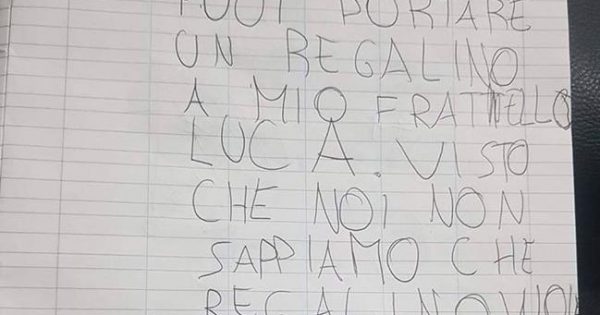 PUOI PORTARE
UN REGALINO
A MIO FRATINELLO
LUCA. VISTO
CHE NOI NON
SAPPIAMO CHE
REGALINO VUOI